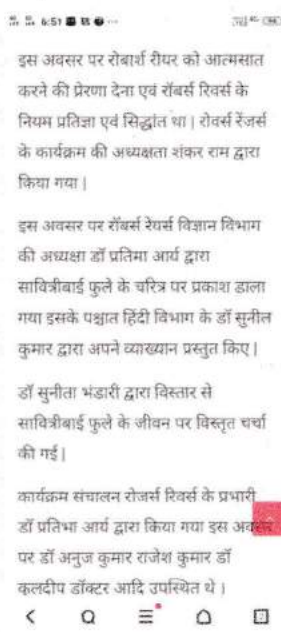 6:51
इस अवसर पर रोबार्श रीयर को आत्मसात
करने की प्रेरणा देना एवं रॉबर्स रिवर्स के
नियम प्रतिज्ञा एवं सिद्धांत था | रोवर्स रेंजर्स
के कार्यक्रम की अध्यक्षता शंकर राम द्वारा
किया गया |
इस अवसर पर रॉबर्स रेयर्स विज्ञान विभाग
की अध्यक्षा डॉ प्रतिमा आर्य द्वारा
सावित्रीबाई फुले के चरित्र पर प्रकाश डाला
गया इसके पश्चात हिंदी विभाग के डॉ सुनील
कुमार द्वारा अपने व्याख्यान प्रस्तुत किए |
डॉ सुनीता भंडारी द्वारा विस्तार से
सावित्रीबाई फुले के जीवन पर विस्तृत चर्चा
की गई |
कार्यक्रम संचालन रोजर्स रिवर्स के प्रभारी
डॉ प्रतिभा आर्य द्वारा किया गया इस अवसर
पर डॉ अनुज कुमार राजेश कुमार डॉ
कुलदीप डॉक्टर आदि उपस्थित थे |